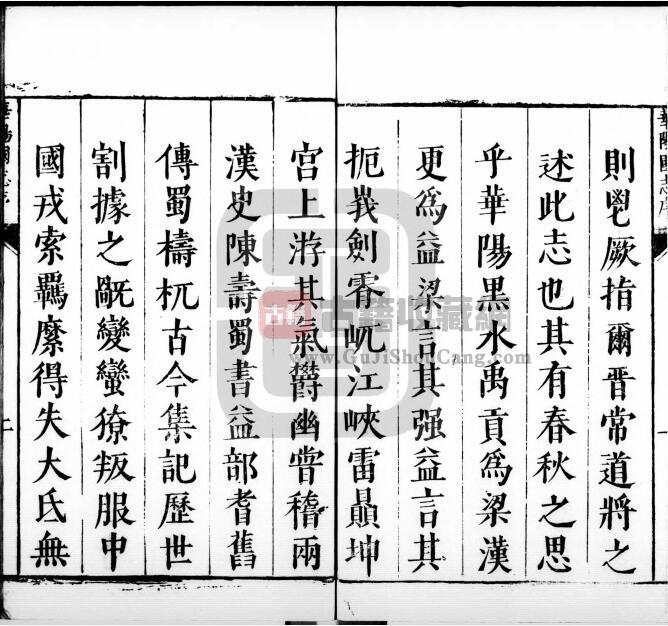 華陽國志序
一
則鬯厥指爾晉常道將之
述此志也其有春秋之思
乎華陽黑水禹貢為梁漢
更為益梁言其强益言其
扼峩劍岏江峽雷坤
宫上游其氣欝幽甞稽兩
漢史陳壽蜀書益部耆舊
傳蜀檮杌古今集記歷世
割據之變蠻獠叛服中
國戎索羈縻得失大氐無
華陽國志序
古籍 古籍收藏網
www.GuJiShouCang.com